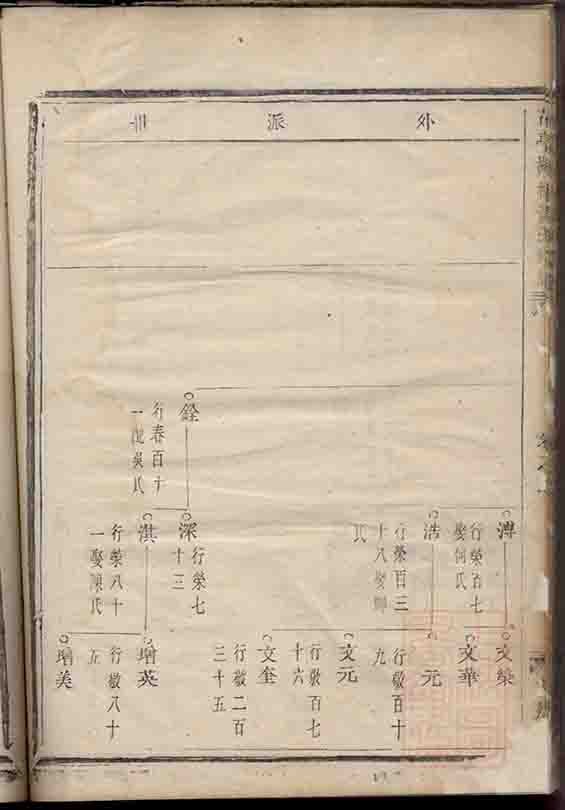 外派世
銓
行春百十
一娶吳氏
溥
行榮百七
娶何氏
浩
行榮百三
十八娶
氏
深
行榮七
十三
淇
行榮八十
一娶陳氏
文榮
文華
元
行敬百十
九
文元
行敬百七
十六
文奎
行敬二百
三十五
增英
行敬八十
五
增美